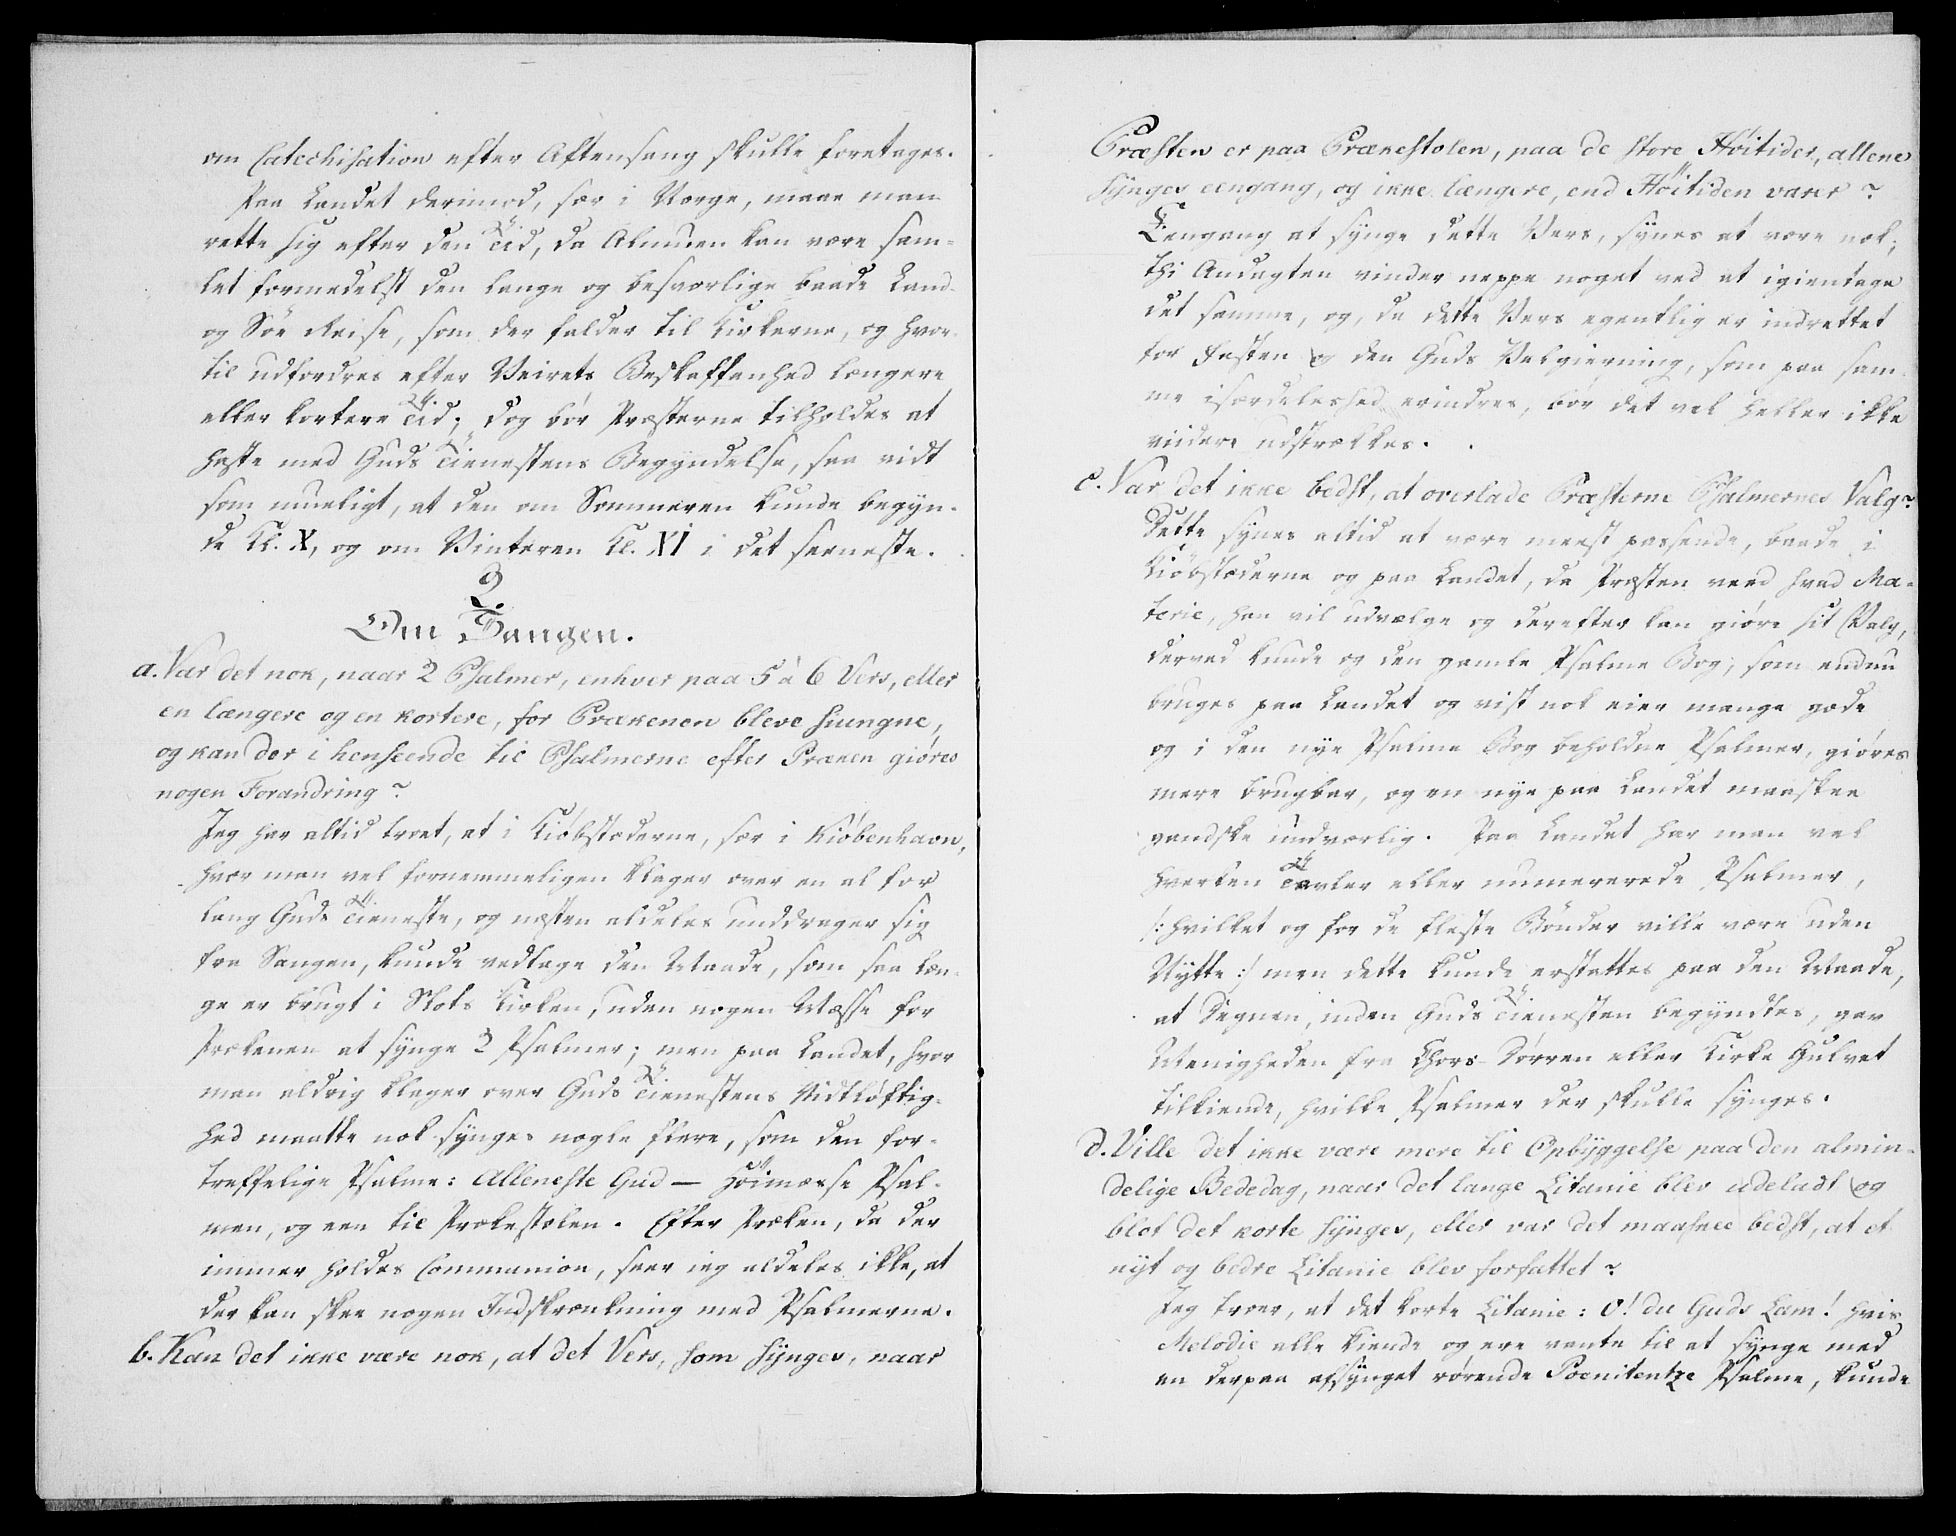 om Catechisation efter Aftensang skulle foretages.
Paa Landet derimod, sær i Norge, maae man
rette sig efter den Tid, da Almuen kan være sam-
let formedelst den lange og besværlige baade Land-
og Söe Reise, som der falder til Kirkerne, og hvor-
til udfordres efter Veirets Beskaffenhed længere
eller kortere Tid; dog bör Præsterne tilholdes at
haste med Guds Tienestens Begyndelse, saa vidt
som mueligt, at den om Sommeren kunde begyn-
de Kl. X, og om Vinteren Kl. XI i det seeneste.
2.
Om Sangen.
a. Var det nok, naar 2 Psalmer, enhver paa 5 à 6 Vers, eller
en længere og en kortere, for Prækenen bleve siungne,
og kan der i henseende til Psalmerne efter Præken giöres
nogen Forandring?
Jeg har altid troet, at i Kiöbstæderne, sær i Kiöbenhavn,
hvor man vel fornemmeligen klager over en al for
lang Guds Tieneste, og næsten aldeles unddrager sig
fra Sangen, kunde vedtage den Maade, som saa læn-
ge er brugt i Slots Kirken, uden nogen Messe for
Prækenen at synge 2 Psalmer; men paa Landet, hvor
man aldrig klager over Guds Tienestens Vidtlöftig-
hed maatte nok synges nogle flere, som den for-
treffelige Psalme: Alleneste Gud — Höimæsse Psal-
men, og een til Prækestolen. Efter Præken, da der
immer holdes Communion, seer ieg aldeles ikke, at
der kan skee nogen Indskrænkning med Psalmerne.
b. Kan det ikke være nok, at det Vers, som synges, naar
Præsten er paa Prækestolen, paa de store Höitider, allene
synges eengang, og ikke længere, end Höitiden varer?
Eengang at synge dette Vers, synes at være nok;
thi Andagten vinder neppe noget ved at igientage
det samme, og, da dette Vers egentlig er indrettet
for Festen og den Guds Velgierning, som paa sam-
me isærdeleshed erindres, bör det vel heller ikke
viidere udstrækkes.
c. Var det ikke bedst, at overlade Præsterne Psalmernes Valg?
Dette synes altid at være meest passende, baade i
Kiöbstæderne og paa Landet, da Præsten veed hvad Ma-
terie, han vil udvælge og derefter kan giöre sit Valg,
derved kunde og den gamle Psalme Bog, som endnu
bruges paa Landet og vist nok eier mange gode
og i den nye Psalme Bog beholdne Psalmer, giöres
mere brugbar, og en nye paa Landet maaskee
gandske undværlig. Paa Landet har man vel
hverken Tavler eller numererede Psalmer,
/: hvilket og for de fleste Bönder ville være uden
Nytte :/ men dette kunde erstattes paa den Maade,
at Degnen, inden Guds Tienesten begyndtes, gav
Menigheden fra Chors-Dörren eller Kirke Gulvet
tilkiende, hvilke Psalmer der skulle synges.
d. Ville det ikke være mere til Opbyggelse paa den almin-
delige Bededag, naar det lange Litanie blev udeladt og
blot det korte synges, eller var det maaskee bedst, at et
nyt og bedre Litanie blev forfattet?
Jeg troer, at det korte Litanie: O! du Guds Lam! hvis
Melodie alle kiende og ere vante til at synge med
en derpaa afsynget rörende Poenitentze Psalme, kunde